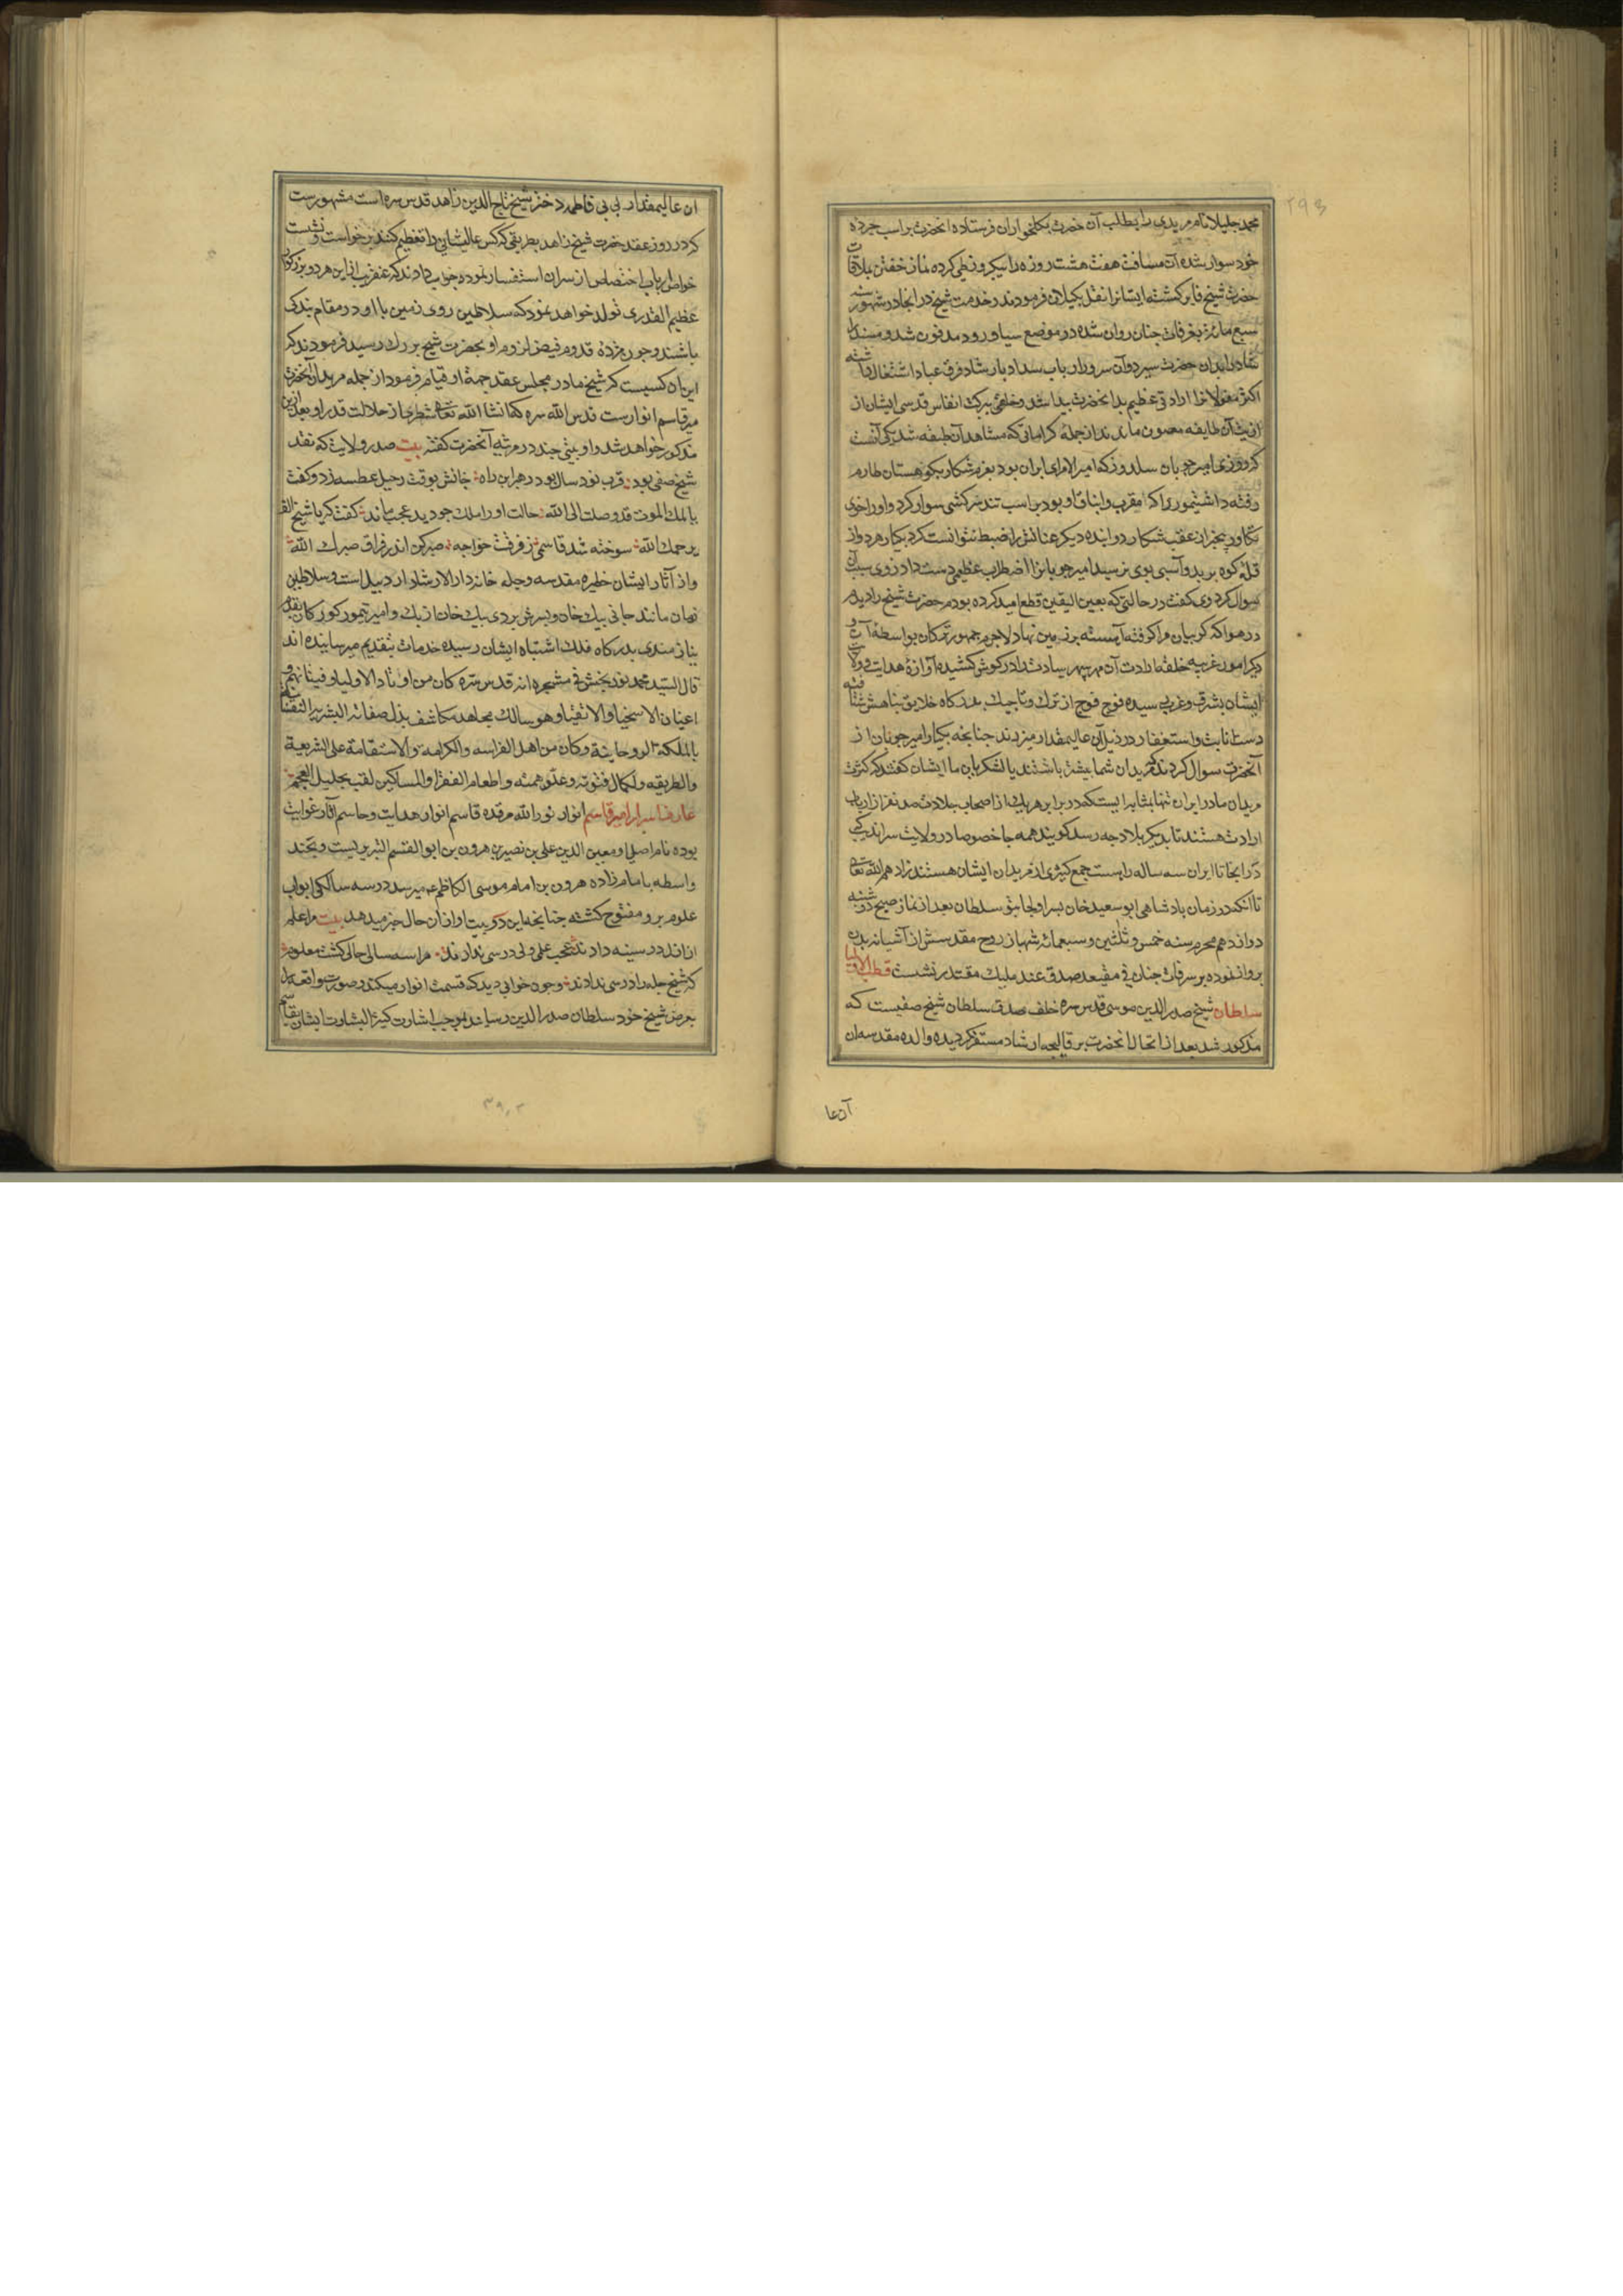 ۲۹۳
محمد جلیلا نام مریدی را بطلب آن حضرت بکلخواران فرستاده آنحضرت بر اسب جرده
خود سوار شده آن مسافت هفت هشت روزه را بیکروز طی کرده نماز خفتن بملاقات
حضرت شیخ فایز کشته ایشانرا نقل بکیلان فرمودند و خدمت شیخ در انجا در شهور سنه
سبع مائه بغرفات جنان روان شده در موضع سیاورود مدفون شد و مسند
ارشاد را بدان حضرت سپرد و آن سرور ارباب سداد بارشاد فرق عباد اشتغال داشته
اکثر مغول را ارادتی عظیم بدانحضرت پیدا شد و خلقی ببرکت انفاس قدسی ایشان از
اذیت آن طایفه مصون ماندند از جمله کراماتی که مشاهد آن طبقه شد یکی آنست
که روزی امیر چوپان سلدوز که امیر الامرای ایران بود بعزم شکار بکوهستان طارم
رفته داشتیمور را که مقرب و ایناق او بود بر اسب تند سرکشی سوار کرد و اورا خوی
تکاور بیخبران عقب شکار دوانده دیکر عنانش را ضبط نتوانست کرد بیکبار هر دو از
قله کوه پرید و آسیبی بوی نرسید امیر چوپانرا اضطراب عظیمی دست داد از وی سبب آن
سوال کرد وی کفت در حالتی که بعین الیقین قطع امید کرده بودم حضرت شیخ را دیدم
در هوا که کریبان مرا کرفته آهسته بر زمین نهاد لاجرم جمهور ترکان بواسطه آن و
دیکر امور غریبه حلقه ارادت آن مهر سپهر سیادت را در کوش کشیده آوازه هدایت و ولایت
ایشان بشرق و غرب رسیده فوج فوج از ترک و تاجیک بدرکاه خلایق پناهش شتافته
دست انابت و استغفار در ذیل آن عالیمقدار میزدند چنانچه یکبار امیر چوپان از
آنحضرت سوال کردند که مریدان شما بیشتر باشند یا لشکریان ما ایشان کفتند که کثرت
مریدان ما در ایران تنها بمثابه ایست که در برابر هر یک از اصحاب جلادت صد نفر از ارباب
ارادت هستند تا بدیکر بلاد چه رسد کویند همه جا خصوصا در ولایت سراندیب که
از آنجا تا ایران سه ساله راهست جمع کثیری از مریدان ایشان هستند زادهم الله تعالی
تا انکه در زمان پادشاهی ابو سعید خان پسر اولجایتو سلطان بعد از نماز صبح دوشنبه
دوازدهم محرم سنه خمس و ثلثین و سبعمائه شهباز روح مقدسش از آشیانه بدن
پرواز نموده بر شرفات جنان فی مقعد صدق عند ملیک مقتدر نشست قطب الاولیا
سلطان شیخ صدر الدین موسی قدس سره خلف صدق سلطان شیخ صفیست که
مذکور شد بعد از انتحال آنحضرت بر قالیچه ارشاد مستقر کردیده والده مقدسه ان
آن عا
ان عالیمقدار بی بی فاطمه دختر شیخ تاج الدین زاهد قدس سره است مشهورست
که در روز عقد حضرت شیخ زاهد بطریقی که کس عالیشانی را تعظیم کند برخواست و نشست
خواص ارباب اختصاص از سران استفسار نموده جواب دادند که عنقریب از این هر دو بزرکوار
عظیم القدری تولد خواهد نمود که سلاطین روی زمین با او در مقام بندکی
باشند و چون مژده قدوم فیض لزوم او بحضرت شیخ بزرک رسید فرمودند که
این آن کسیست که شیخ ما در مجلس عقد جهة او قیام فرمود از جمله مریدان آنحضرت
میر قاسم انوارست قدس الله سره که انشا الله تعالی شطری از جلالت قدر او بعد ازین
مذکور خواهد شد و او بیتی چند در مرثیه آنحضرت کفته بیت صدر ولایت که نقد
شیخ صفی بود قرب نود سال بود رهبر این راه جانش بوقت رحیل عطسه زد و کفت
یا ملک الموت قد وصلت الی الله حالت او را ملک چو دید عجب ماند کفت که یا شیخ الف
یرحمک الله سوخته شد قاسمی ز فرقت خواجه صبر کن اندر فراق صبرک الله
و از آثار ایشان حظیره مقدسه و چله خانه دار الارشاد اردبیل است و سلاطین
زمان مانند جانی بیک خان و پسرش بردی بیک خان ازبک و امیر تیمور کورکان بقدم
نیازمندی بدرکاه فلک اشتباه ایشان رسیده خدمات بتقدیم میرسانیده اند
قال السید محمد نوربخش فی مشجره انه قدس سره کان من اوتاد الاولیا و فیتانهم و
اعیان الاسخیا و الاتقیا و هو سالک مجاهد مکاشف بذل صفاته البشریه النفسانیه
بالملکه الروحانیة و کان من اهل الفراسه و الکرامه و الاستقامة علی الشریعة
والطریقه و لکمال فتوته و علو همته و اطعام الفقرا و المساکین لقب بجلیل العجم
عارف اسرار امیر قاسم انوار نور الله مرقده قاسم انوار هدایت و حاسم آثار غوایت
بوده نام اصلی او معین الدین علی بن نصیر بن هرون بن ابو القسم التبریزیست و بچند
واسطه بامام زاده هرون بن امام موسی الکاظم ع میرسد در سه سالکی ابواب
علوم بر و مفتوح کشته چنانچه این دو بیت او از ان حال خبر میدهد بیت مرا علم
ازل در سینه دادند عجب علمی ولی درسی ندادند مرا سه سالی حالی کشت معلوم
که شیخ چله را درسی ندادند و چون خوابی دید که قسمت انوار میکند و صورت واقعه را
بعرض شیخ خود سلطان صدر الدین رسانید بموجب اشارت کثیر البشاوت ایشان بقاسم
۳۹۰۲